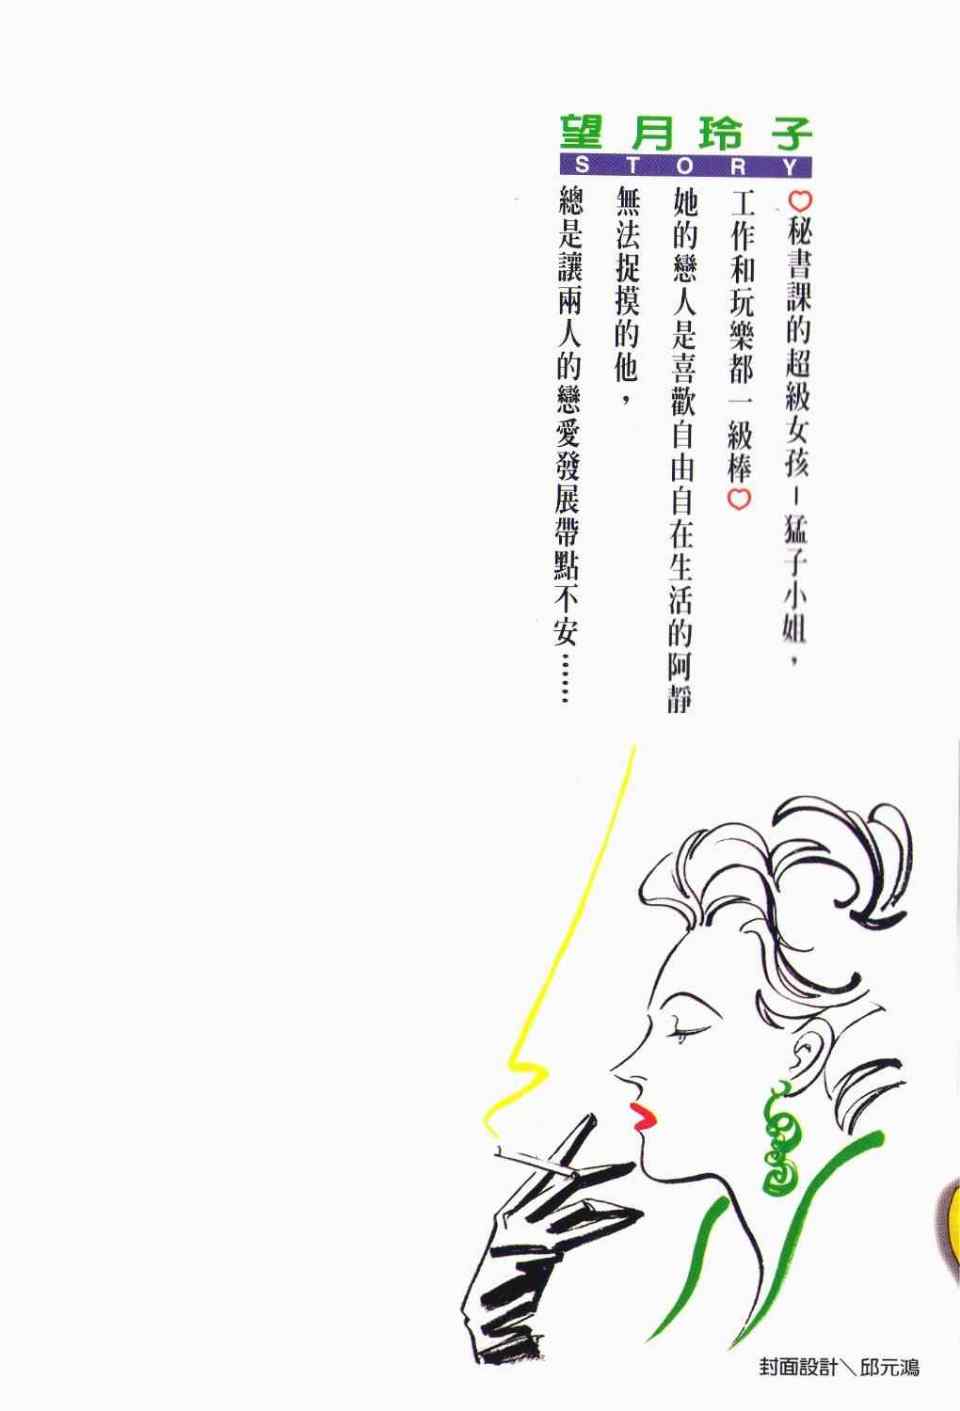 望月玲子
STORY
♡秘書課的超級女孩－猛子小姐，
工作和玩樂都一級棒♡
她的戀人是喜歡自由自在生活的阿靜
無法捉摸的他，
總是讓兩人的戀愛發展帶點不安……
封面設計＼邱元鴻